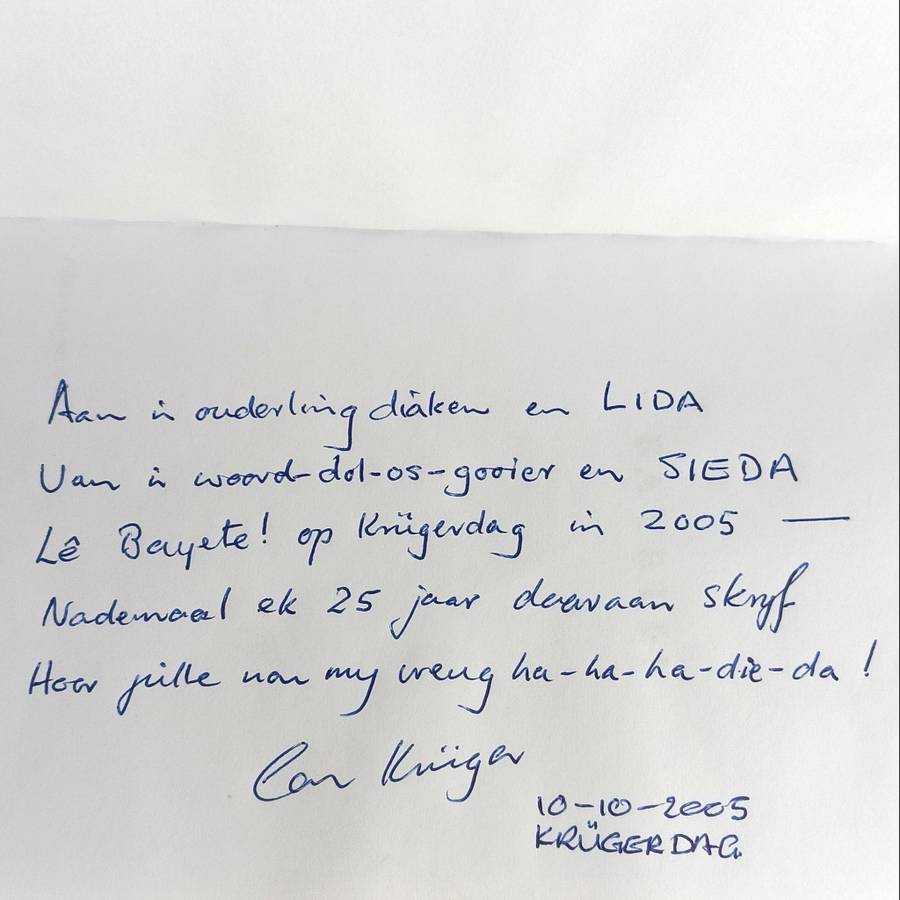 Aan 'n ouderling diáken en LIDA
Van 'n woord-dol-os-gooier en SIEDA
Lê Bayete! op Krügerdag in 2005 —
Nademaal ek 25 jaar daaraan skryf
Hoor julle nou my vreug ha-ha-ha-die-da!
Krüger
10-10-2005
KRÜGERDAG.